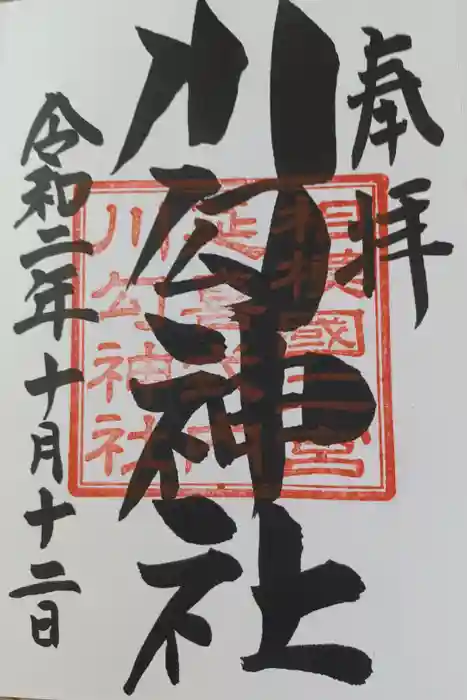 奉拝
川勾神社
令和二年十月十二日
相模國二宮
延喜式内
川勾神社